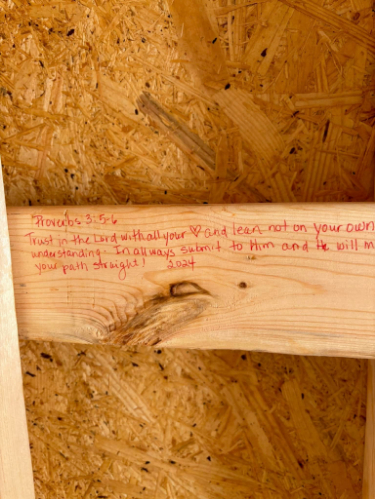 Proverbs 3:5-6
Trust in the Lord with all your ♡ and lean not on your own
understanding. In all ways submit to Him and He will m
your path straight! 2024